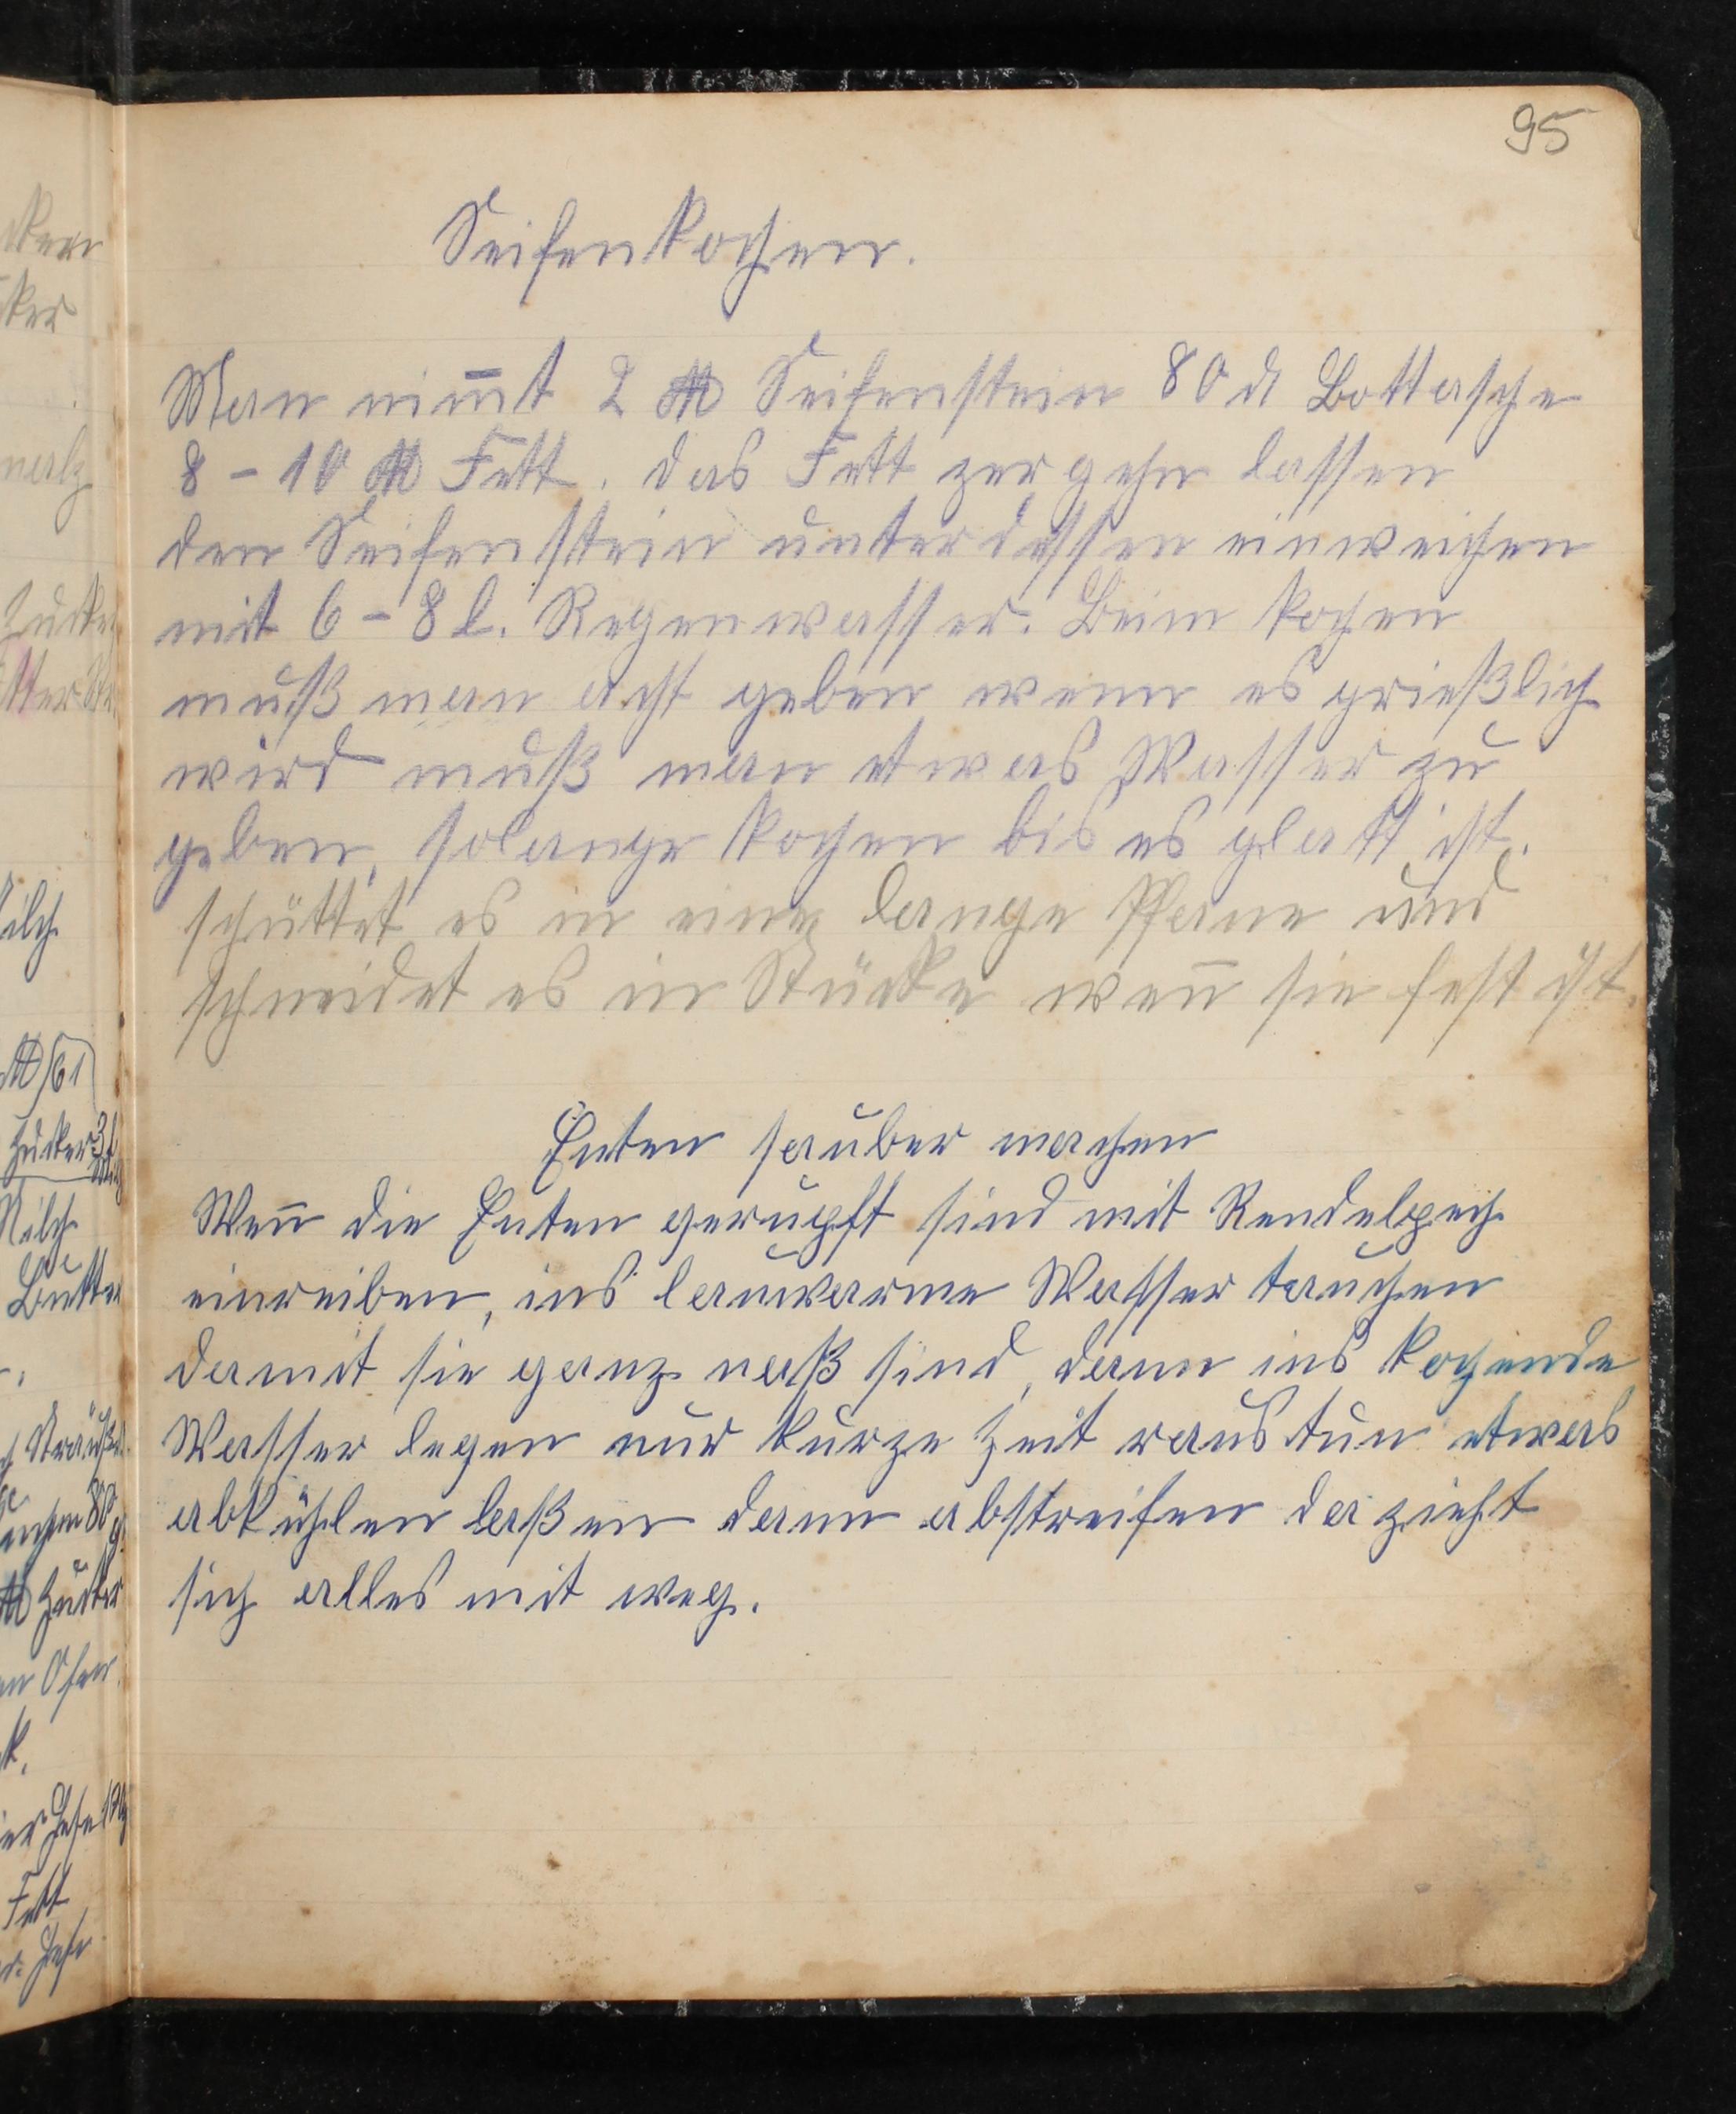 95
Seifenkochen.
Man nim̅t 2 ℔ Seifenstein 80 ₰ Bottasche
8 - 10 ℔ Fett. das Fett zergehn lassen
den Seifenstein unterdessen einweichen
mit 6 - 8 l. Regenwasser. Beim kochen
muß man acht geben wenn es grießlich
wird muß man etwas Wasser zu
geben, solange kochen bis es glatt ist.
schüttet es in eine lange Pfane und
schneidet es in Stücke wen̅ sie fest ist.
Enten sauber machen
Wen̅ die Enten gerupft sind mit
einreiben, ins lauwarme Wasser tauchen
damit sie ganz naß sind, dann ins kochende
Wasser legen nur kurze Zeit raus tun etwas
abkühlen laßen dann abstreifen da zieht
sich alles mit weg.